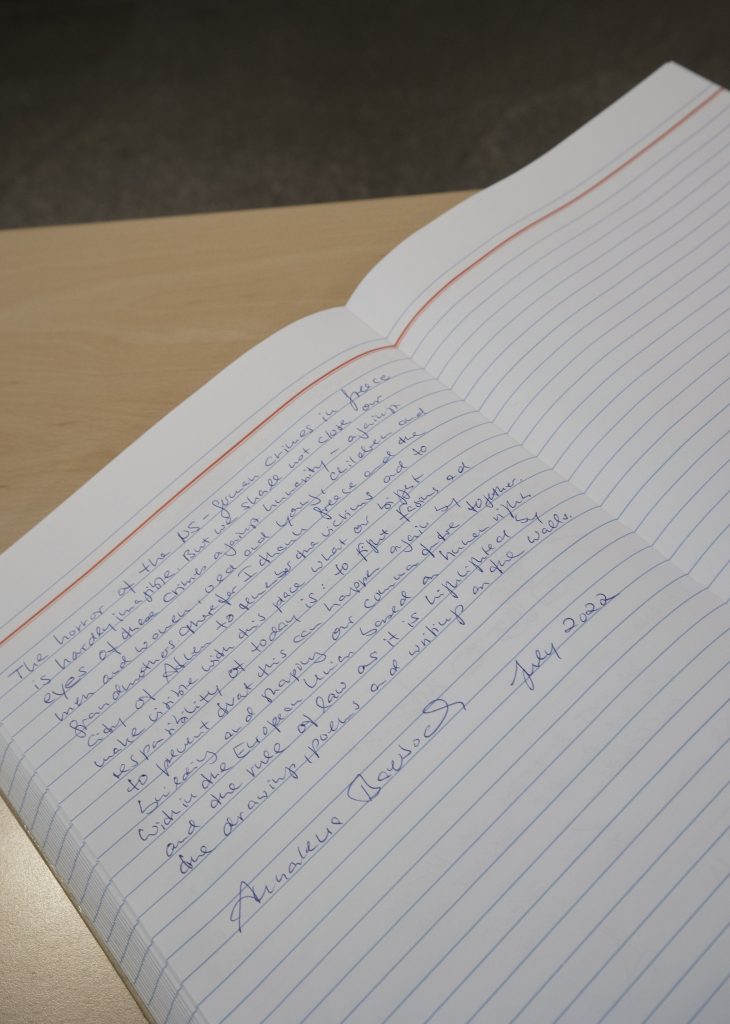 The horror of the NS-German crimes in Greece
is hardly imagible. But we shall not close our
eyes of these crimes against humanity - against
men and women, old and young, children and
grandmothers. Therefor I thank Greece and the
City of Athen to remember the victims and to
make visible with this place what our biggest
responsibility of today is: to fight fascism and
to prevent that this can happen again by
building and shaping our common future together
within the European Union based on human rights
and the rule of law as it is highlighted by
the drawings, poems and writings on the walls.
Annalena Baerbock July 2022